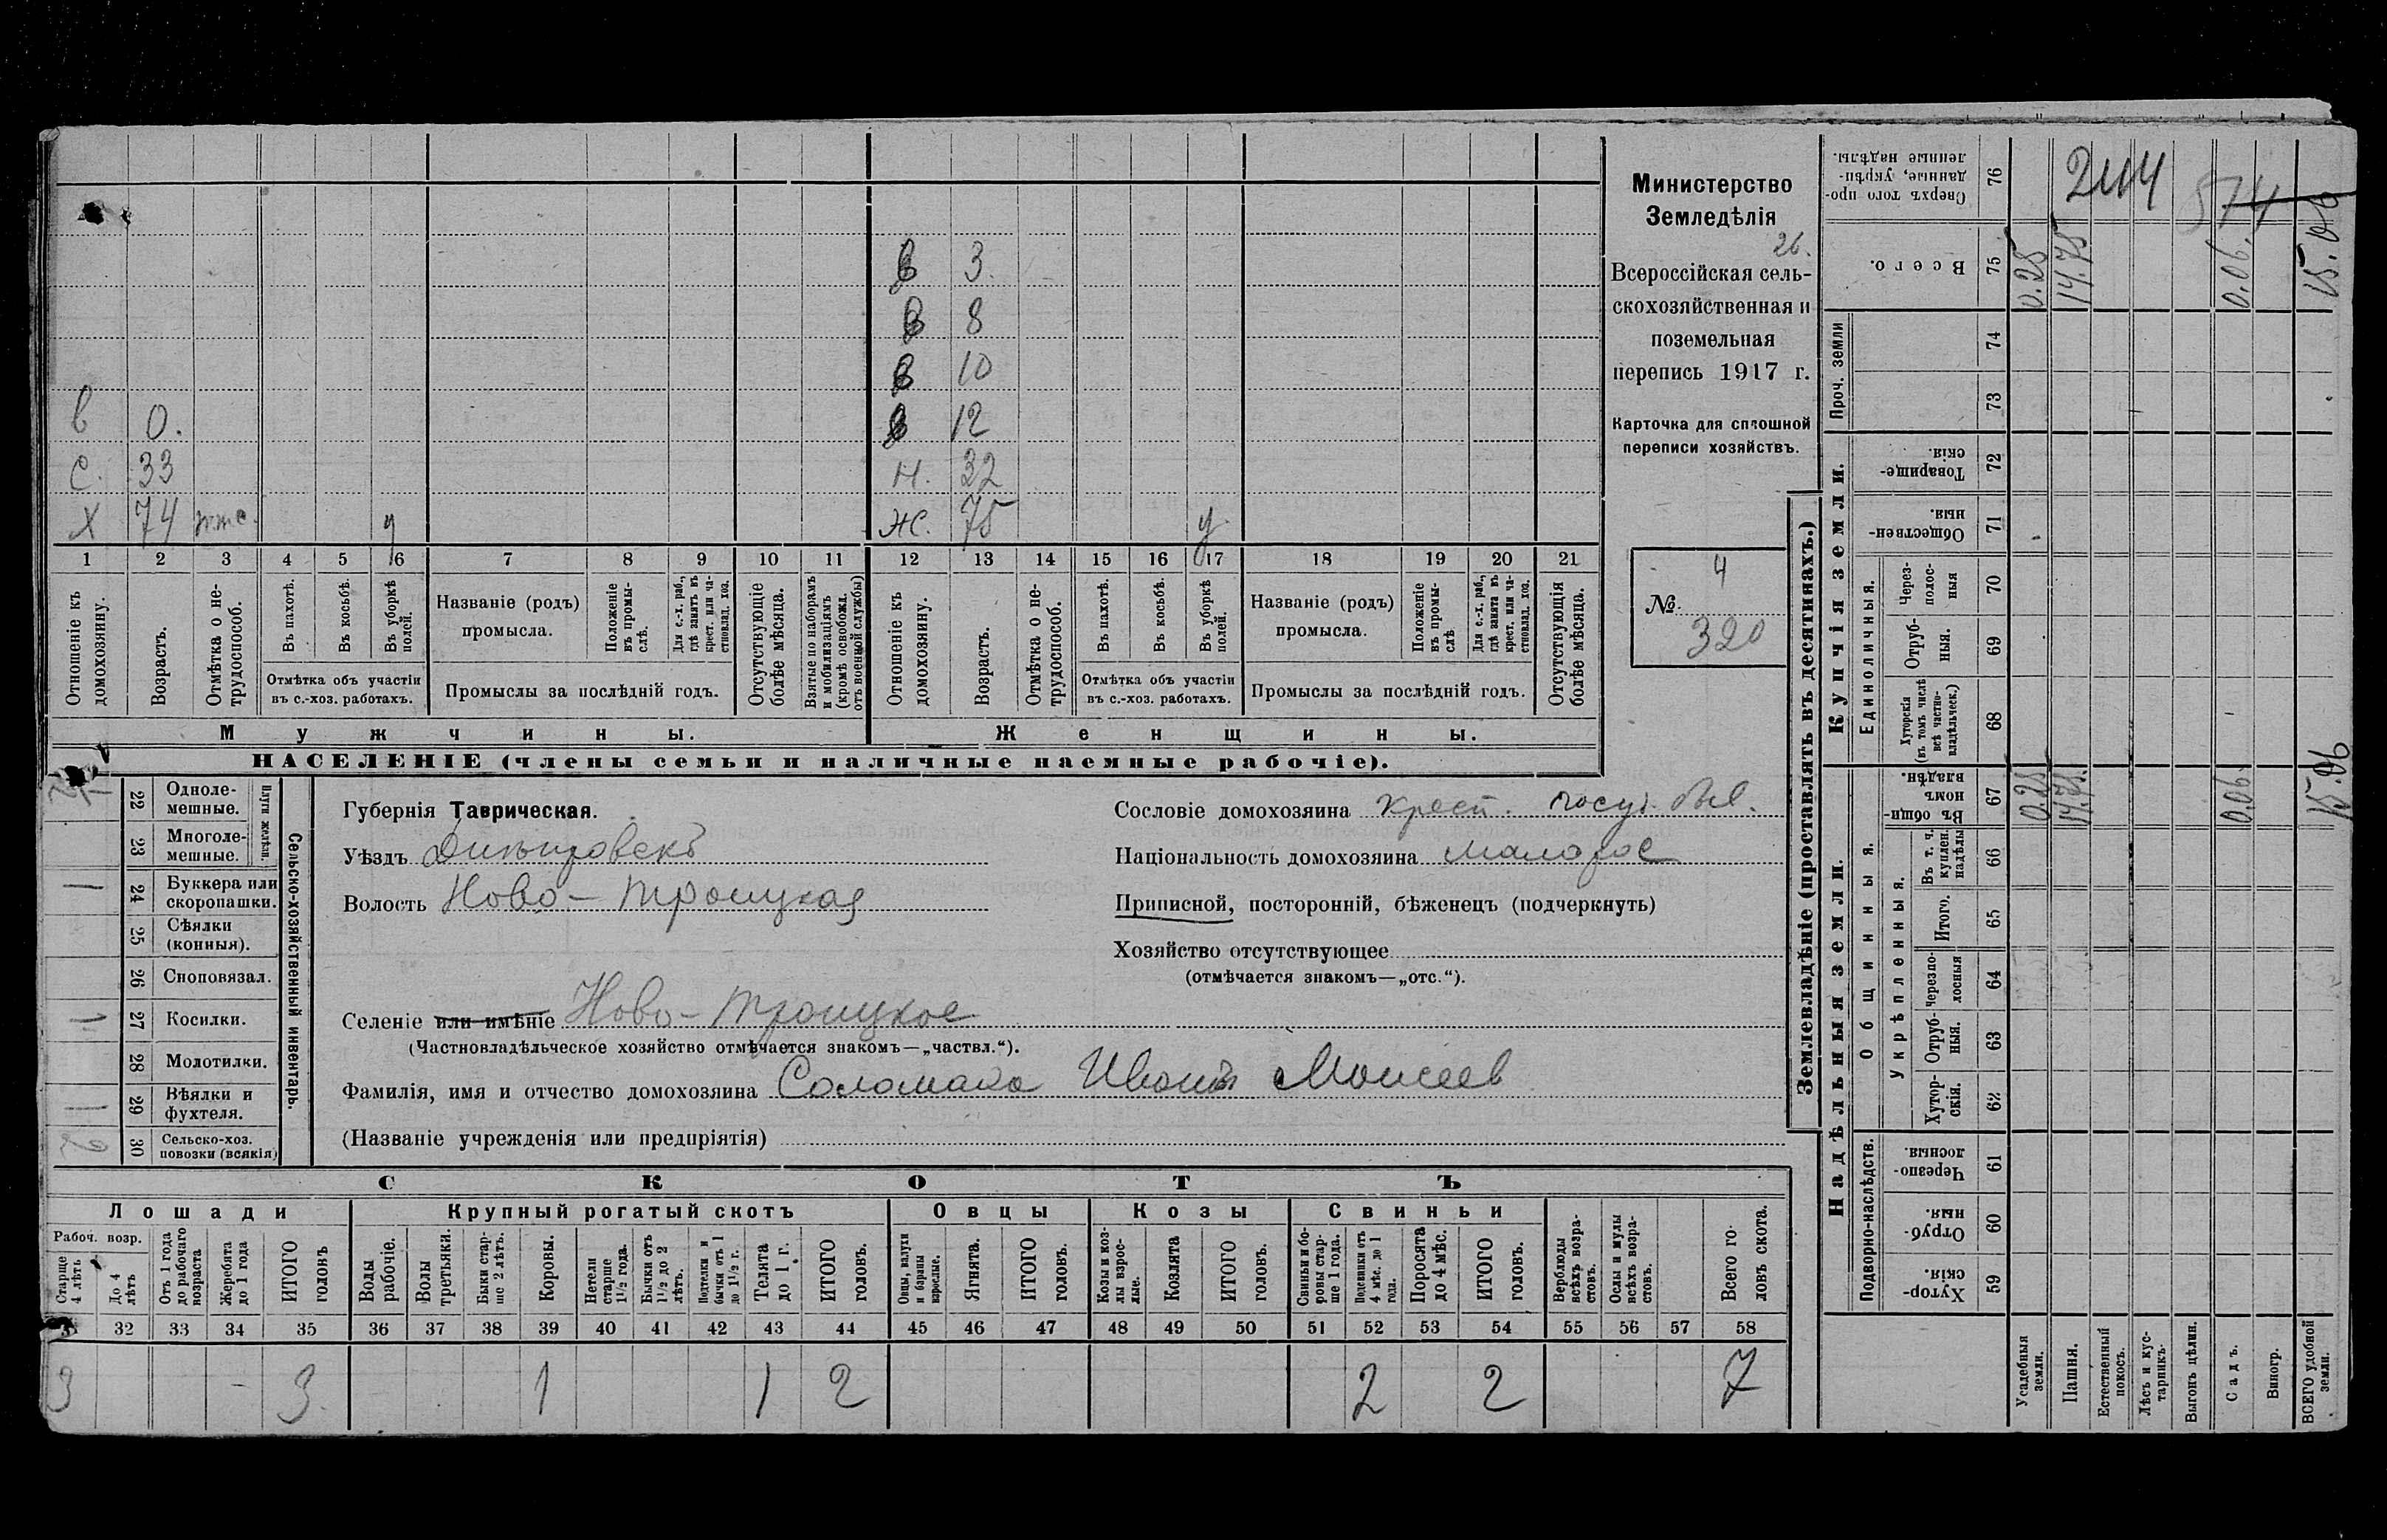 в 3.
в 8
в 10
в 0. в 12
с. 33 н. 32
х 74 у ж. 75 у
1 2 3 4 5 6 7 8 9 10 11 12 13 14 15 16 17 18 19 20 21
Отношеніе къ домохозяину.
Возрастъ.
Отмѣтка о не-
трудоспособ.
Въ пахотѣ.
Въ косьбѣ.
Въ уборкѣ
полей.
Отмѣтка объ участіи
въ с.-хоз. работахъ.
Названіе (родъ)
промысла.
Положеніе
въ промы-
слѣ.
Для с.-х. раб.,
гдѣ занятъ въ
крест. или ча-
стновлад. хоз.
Промыслы за послѣдній годъ.
Отсутствующіе
болѣе мѣсяца.
Взятые по наборамъ
и мобилизаціямъ
(кромѣ освобожд.
отъ военной службы)
Отношеніе къ
домохозяину.
Возрастъ.
Отмѣтка о не-
трудоспособ.
Въ пахотѣ.
Въ косьбѣ.
Въ уборкѣ
полей.
Отмѣтка объ участіи
въ с.-хоз. работахъ.
Названіе (родъ)
промысла.
Положеніе
въ промы-
слѣ
Для с.-х. раб.,
гдѣ занята въ
крест. или ча-
стновлад. хоз.
Промыслы за послѣдній годъ.
Отсутствующія
болѣе мѣсяца.
Мужчины. Женщины.
НАСЕЛЕНІЕ (члены семьи и наличные наемные рабочіе).
Министерство
Земледѣлія
26.
Всероссійская сель-
скохозяйственная и
поземельная
перепись 1917 г.
Карточка для сплошной
переписи хозяйствъ.
4
№
320
22 Одноле-
мешные.
23 Многоле-
мешные.
Плуги желѣзн.
24 Буккера или
скоропашки.
25 Сѣялки
(конныя).
26 Сноповязал.
27 Косилки.
28 Молотилки.
29 Вѣялки и
фухтеля.
30 Сельско-хоз.
повозки (всякія)
Сельско-хозяйственный инвентарь.
Губернія Таврическая.
Уѣздъ Днѣпровскъ
Волость Ново-Троицкая
Сословіе домохозяина крест. госуд. был.
Національность домохозяина малорос
Приписной, посторонній, бѣженецъ (подчеркнуть)
Хозяйство отсутствующее
(отмѣчается знакомъ—„отс.“).
Селеніе или имѣніе Ново-Троицкое
(Частновладѣльческое хозяйство отмѣчается знакомъ—„частвл.“).
Фамилія, имя и отчество домохозяина Соломаха Иванъ Моисеев
(Названіе учрежденія или предпріятія)
СКОТЪ
Лошади Крупный рогатый скотъ Овцы Козы Свиньи
Рабоч. возр.
Старше
4 лѣтъ
До 4
лѣтъ
Отъ 1 года
до рабочаго
возраста
Жеребята
до 1 года
ИТОГО
головъ
Волы
рабочіе.
Волы
третьяки.
Быки стар-
ше 2 лѣтъ.
Коровы.
Нетели
старше
1½ года.
Бычки отъ
1½ до 2
лѣтъ.
Подтелки и
бычки отъ 1
до 1½ г.
Телята
до 1 г.
ИТОГО
головъ.
Овцы, валухи
и бараны
взрослые.
Ягнята.
ИТОГО
головъ.
Козы и коз-
лы взрос-
лые.
Козлята
ИТОГО
головъ.
Свиньи и бо-
ровы стар-
ше 1 года.
Подсвинки отъ
4 мѣс. до 1
года.
Поросята
до 4 мѣс.
ИТОГО
головъ.
Верблюды
всѣхъ возра-
стовъ.
Ослы и мулы
всѣхъ возра-
стовъ.
Всего го-
ловъ скота.
32 33 34 35 36 37 38 39 40 41 42 43 44 45 46 47 48 49 50 51 52 53 54 55 56 57 58
3 - 3. 1 1 2 2 2 7
Землевладѣніе (проставлять въ десятинахъ.)
Надѣльныя земли. Купчія земли. Проч. земли
Подворно-наслѣдств.
Общинныя.
Укрѣпленныя.
Единоличныя.
Сверхъ того про-
данные, укрѣп-
ленные надѣлы. 76
Всего. 75
74
73
Товарище-
скія. 72
Обществен-
ныя. 71
Через-
полос-
ныя 70
Отруб-
ныя. 69
Хуторскія
(въ томъ числѣ
всѣ частно-
владѣльческ.) 68
Въ общин-
номъ
владѣн. 67
Въ т. ч.
куплен.
надѣлы 66
Итого. 65
Черезпо-
лосныя 64
Отруб-
ныя. 63
Хутор-
скія. 62
Черезпо-
лосныя. 61
Отруб-
ныя. 60
Хутор-
скія. 59
Усадебныя
земли.
Пашня.
Естественный
покосъ.
Лѣсъ и кус-
тарникъ.
Выгонъ цѣлин.
Садъ.
Виногр.
ВСЕГО удобной
земли.
574
0.25 14.75 0.06. 15.06
0.25 14.75 0.06 15.06